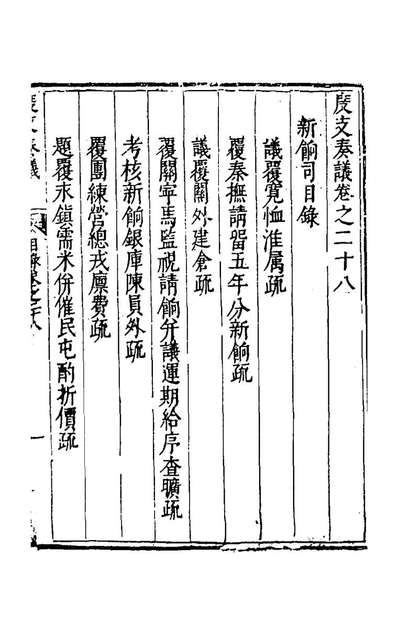 度支奏議卷之二十八
新餉司目錄
議覆寬恤淮属疏
覆秦撫請留五年分新餉疏
議覆關外建倉疏
覆關寧馬監視請餉并議運期給序查曠疏
考核新餉銀庫陳員外疏
覆團練營總戎廪費疏
題覆永鎮需米併催民屯酌折價疏